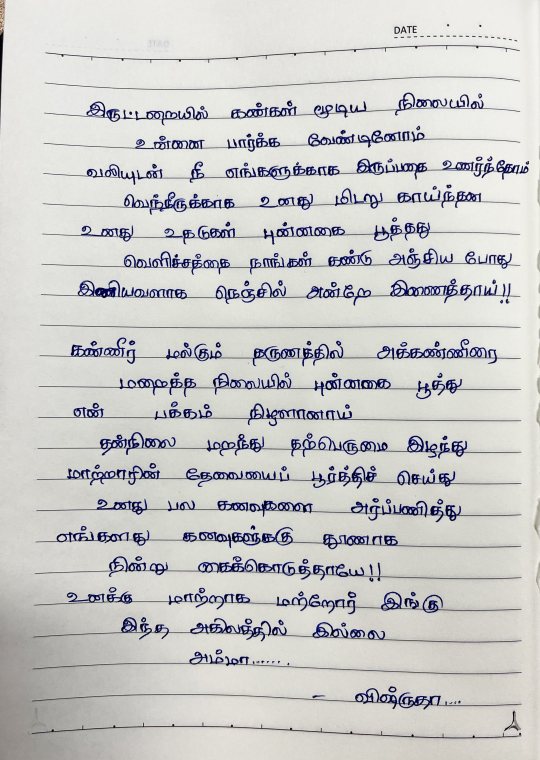 DATE
இருட்டறையில் கண்கள் மூடிய நிலையில்
உன்னை பார்க்க வேண்டினோம்
வலியுடன் நீ எங்களுக்காக இருப்பதை உணர்ந்தோம்
வெந்நீருக்காக உனது மிடறு காய்ந்தன
உனது உதடுகள் புன்னகை பூத்தது
வெளிச்சத்தை நாங்கள் கண்டு அஞ்சிய போது
இனியவளாக நெஞ்சில் அன்றே இணைத்தாய்!!
கண்ணீர் மல்கும் தருணத்தில் அக்கண்ணீரை
மறைத்த நிலையில் புன்னகை பூத்து
என் பக்கம் நிழளானாய்
தன்நிலை மறந்து தற்பெருமை இழந்து
மாற்றாரின் தேவையைப் பூர்த்திச் செய்து
உனது பல கனவுகளை அர்ப்பணித்து
எங்களது கனவுகள்கு தூணாக
நின்று கைக்கொடுத்தாயே!!
உனக்கு மாற்றாக மற்றோர் இங்கு
இந்த அகிலத்தில் இல்லை
அம்மா.......
- விஷ்ருதா....